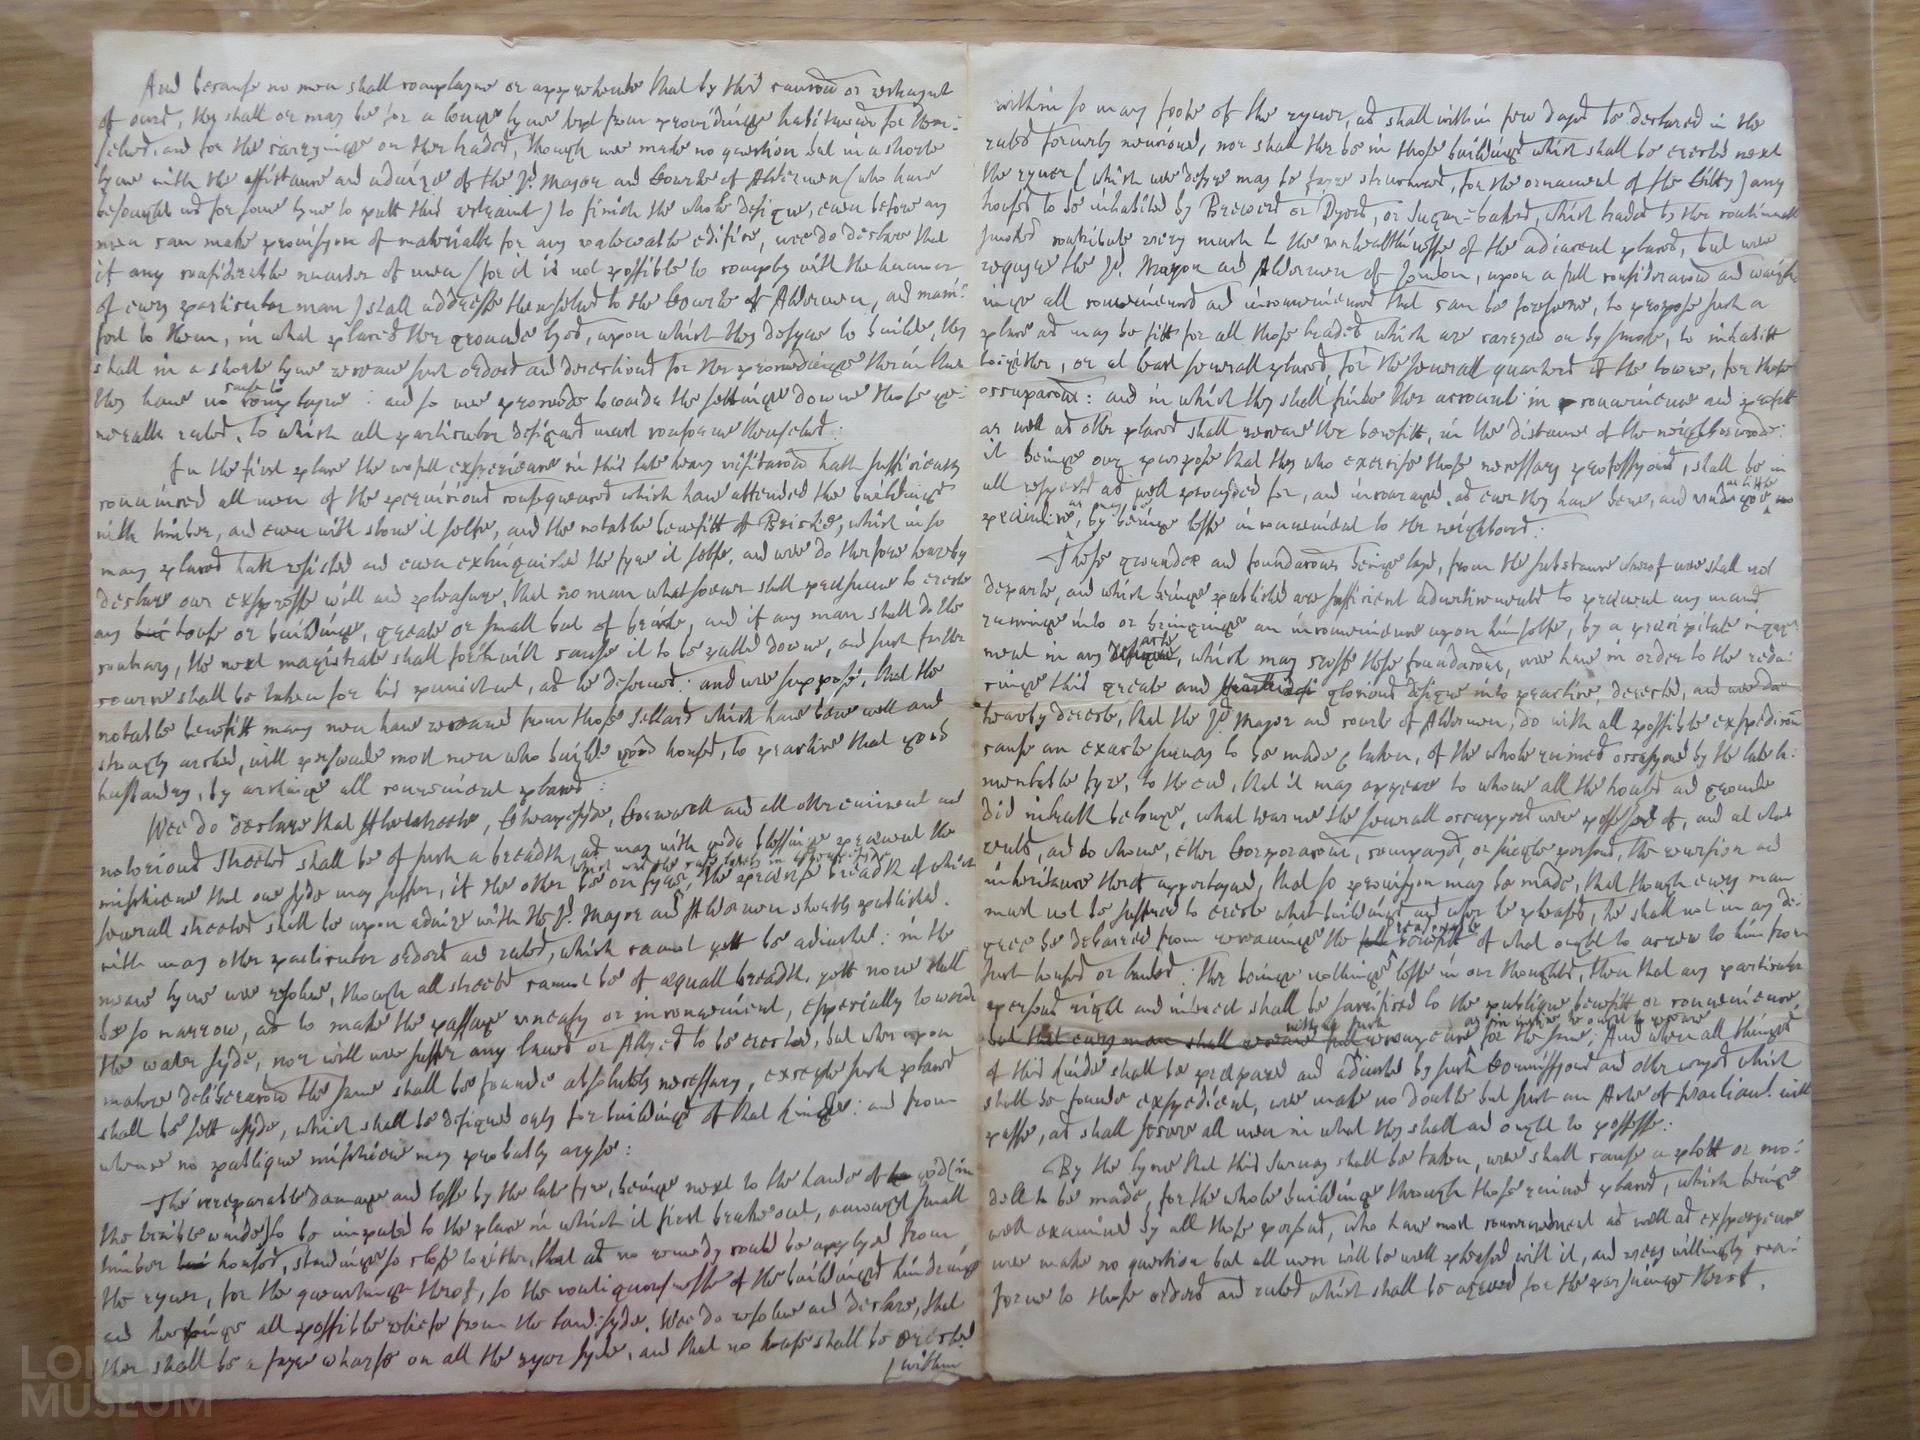 And because no man shall complayne or apprehende that by this caution or restraynt
of ours, they shall or may be for a longe tyme kept from providinge habitacons for them-
selves, and for the carryinge on ther trades, though we make no question but in a shorte
tyme with the assistance and advize of the Ld. Mayor and Courte of Aldermen (who have
besought us for some tyme to putt this restraint) to finish the whole designe, even before any
man can make provisyon of materialls for any valewable edifice, wee do declare that
if any considerable number of men (for it is not possible to comply with the humour
of every particular man) shall addresse themselves to the Courte of Aldermen, and mani-
fest to them, in what places ther grounde lyes, upon which they designe to builde, they
shall in a shorte tyme receave such orders and directions for ther proceedinge therin that
they have no cause to complayne : and so we proceede towards the settinge downe those ge-
neralls rules, to which all particular designes must conforme themselves :
In the first place the wofull experience in this late heavy visitacon hath sufficiently
convinced all men of the pernicious consequences which have attended the buildinge
with timber, and even with stone it selfe, and the notable benefitt of Bricke, which in so
many places hath resisted and even extinguished the fyre it selfe, and wee do therfore heareby
declare our expresse will and pleasure, that no man whatsoever shall presume to erecte
any house or buildinge, greate or small but of bricke, and if any man shall do the
contrary, the next magistrate shall forthwith cause it to be pulled downe, and such further
course shall be taken for his punishmt, as he deserves : and wee suppose, that the
notable benefitt many men have receaved from those Sellars which have bene well and
strongly arched, will perswade most men who builde good houses, to practice that good
husbandry, by archinge all convenient places :
Wee do declare that Fleetstreete, Cheapesyde, Cornewell and all other eminent and
notorious Streetes shall be of such a breadth, as may with gods blessinge prevent the
mischieve that one syde may suffer, if the other be on fyre, which was the case lately in Cheapesyde the precise breadth of which
severall streetes shall be upon advize with the Ld. Mayor and Aldermen shortly published,
with many other particular orders and rules, which cannot yett be adjusted : in the
meane tyme wee resolve, though all streetes cannot be of æquall breadth, yett none shall
be so narrow, as to make the passage uneasy or inconvenient, especially towards
the water syde, nor will wee suffer any lanes or Allyes to be erected, but wher upon
mature deliberacon the same shall be founde absolutely necessary, excepte such places
shall be sett asyde, which shall be designed only for buildings of that kinde : and from
whence no publique mischieve may probably aryse :
The irreparable damage and losse by the late fyre, beinge next to the hande of god (in
the terrible winde) to be imputed to the place in which it first brake out, amongst small
timber houses, standinge so close togither, that as no remedy could be applyed from
the ryver, for the quenchinge therof, so the contiguousnesse of the buildings hindringe
and keepinge all possible reliefe from the land syde. Wee do resolve and declare, that
ther shall be a fayre wharfe on all the ryver syde, and that no house shall be erected
/within
within so many foote of the ryver, as shall within few dayes be declared in the
rules formerly mencioned, nor shall ther be in those buildings which shall be erected next
the ryver (which wee desyre may be fayre structures, for the ornament of the Citty) any
houses to be inhabited by Brewers or Dyers, or Sugar-bakers, which trades by ther continuall
smokes contribute very much to the unhealthinesse of the adjacent places, but wee
requyre the Ld. Mayor and Aldermen of London, upon a full consideracon and weigh-
inge all conveniences and inconveniences that can be foreseene, to propose such a
place as may be fitt for all those trades which are carryed on by smoke, to inhabitt
togither, or at least severall places, for the severall quarters of the towne, for those
occupacons : and in which they shall finde ther account in convenience and profitt
as well as other places shall receave the benefitt, in the distance of the neighborhoode
it beinge our purpose that they who exercise those necessary professyons, shall be in
all respects as well provyded for, and incoraged, as ever they have bene, and undergoe as little
præjudice, as may be by beinge lesse inconvenient to ther neighbours :
These groundes and foundacons beinge layd, from the substance wherof wee shall not
departe, and which beinge published are sufficient advertisements to prevent any mans
runninge into or bringinge an inconvenience upon himselfe, by a precipitate ingage-
ment in any acte, which may crosse these foundacons, wee have in order to the redu-
cinge this greate and glorious designe into practice, directed, and wee do
heareby directe, that the Ld. Mayor and courte of Aldermen, do with all possible expedicon
cause an exacte survay to be made & taken, of the whole ruines occasyoned by the late la-
mentable fyre, to the end, that it may appeare to whome all the houses and grounde
did in truth belonge, what tearme the severall occupyers were possessed of, and at what
rents, and to whome, ether Corporacons, companyes, or single persons, the reversion and
inheritance therof apperteyned, that so provisyon may be made, that though every man
must not be suffred to erecte what buildings and wher he pleases, he shall not in any de-
gree be debarred from receavinge the reasonable benefitt of what ought to accrew to him from
such houses or landes : ther beinge nothinge lesse in our thoughts, then that any particular
persons right and interest shall be sacrificed to the publique benefitt or convenience,
but that every man shall receave full without such recompence for the same, as in justice he ought to receave And when all things
of this kinde shall be prepared and adjusted by such Commissyons and other wayes which
shall be founde expedient, wee make no doubte but such an Acte of Parliamt. will
passe, as shall secure all men in what they shall and ought to possesse :
By the tyme that this Survay shall be taken, wee shall cause a plott or mo-
dell to be made, for the whole buildinge through those ruined places, which beinge
well examined by all those persons, who have most concernement as well as experyence
wee make no question but all men will be well pleased with it, and very willingly con-
forme to those orders and rules which shall be agreed for the pursuinge therof.
LONDON
MUSEUM